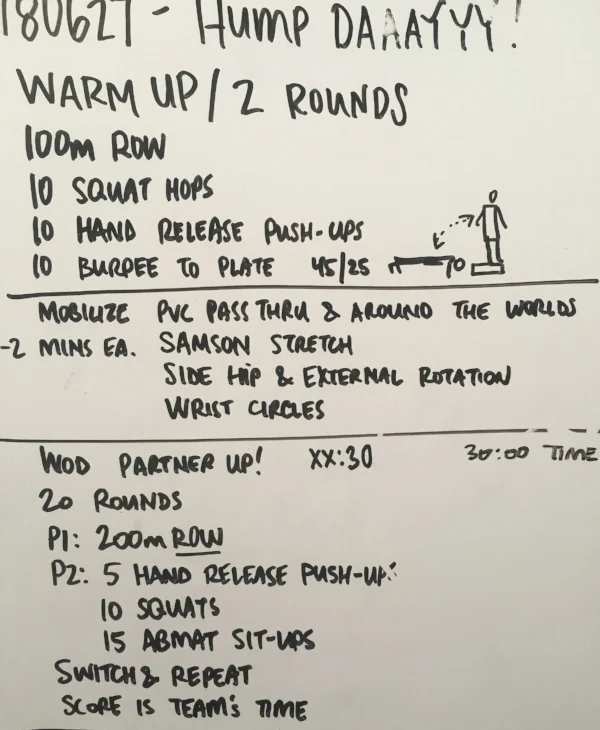 180627 - HUMP DAAAYYY!
WARM UP / 2 ROUNDS
100m ROW
10 SQUAT HOPS
10 HAND RELEASE PUSH-UPS
10 BURPEE TO PLATE 45/25
MOBILIZE PVC PASS THRU & AROUND THE WORLDS
-2 MINS EA. SAMSON STRETCH
SIDE HIP & EXTERNAL ROTATION
WRIST CIRCLES
WOD PARTNER UP! XX:30 30:00 TIME
20 ROUNDS
P1: 200m ROW
P2: 5 HAND RELEASE PUSH-UPS
10 SQUATS
15 ABMAT SIT-UPS
SWITCH & REPEAT
SCORE IS TEAM'S TIME